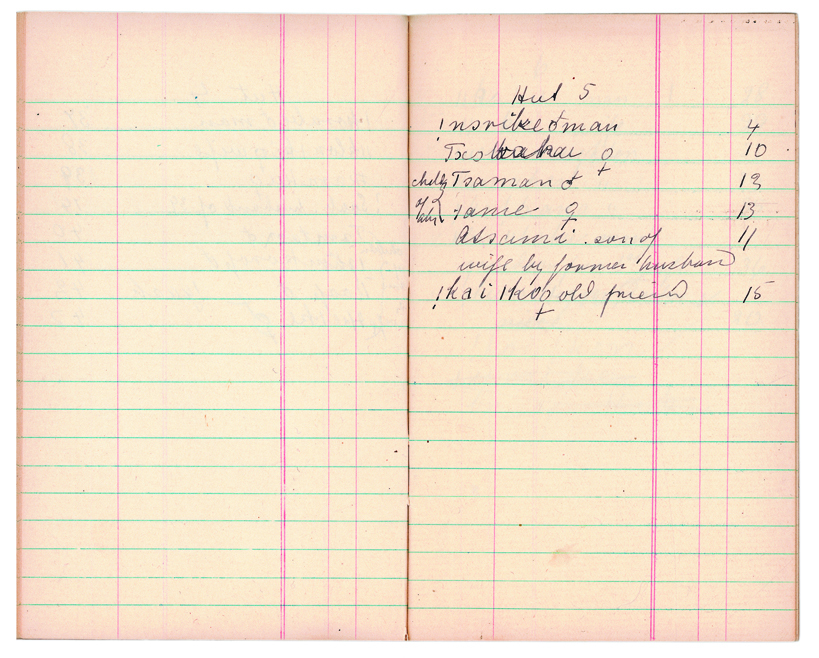 Hut 5
! nsvikeoman 4
Tsswakai ♀ 10
childs Tsaman ♂ 13
of ɪame ♀ 13
Atsami son of 11
wife by former husband
!kai |koo ♀ old friend 15